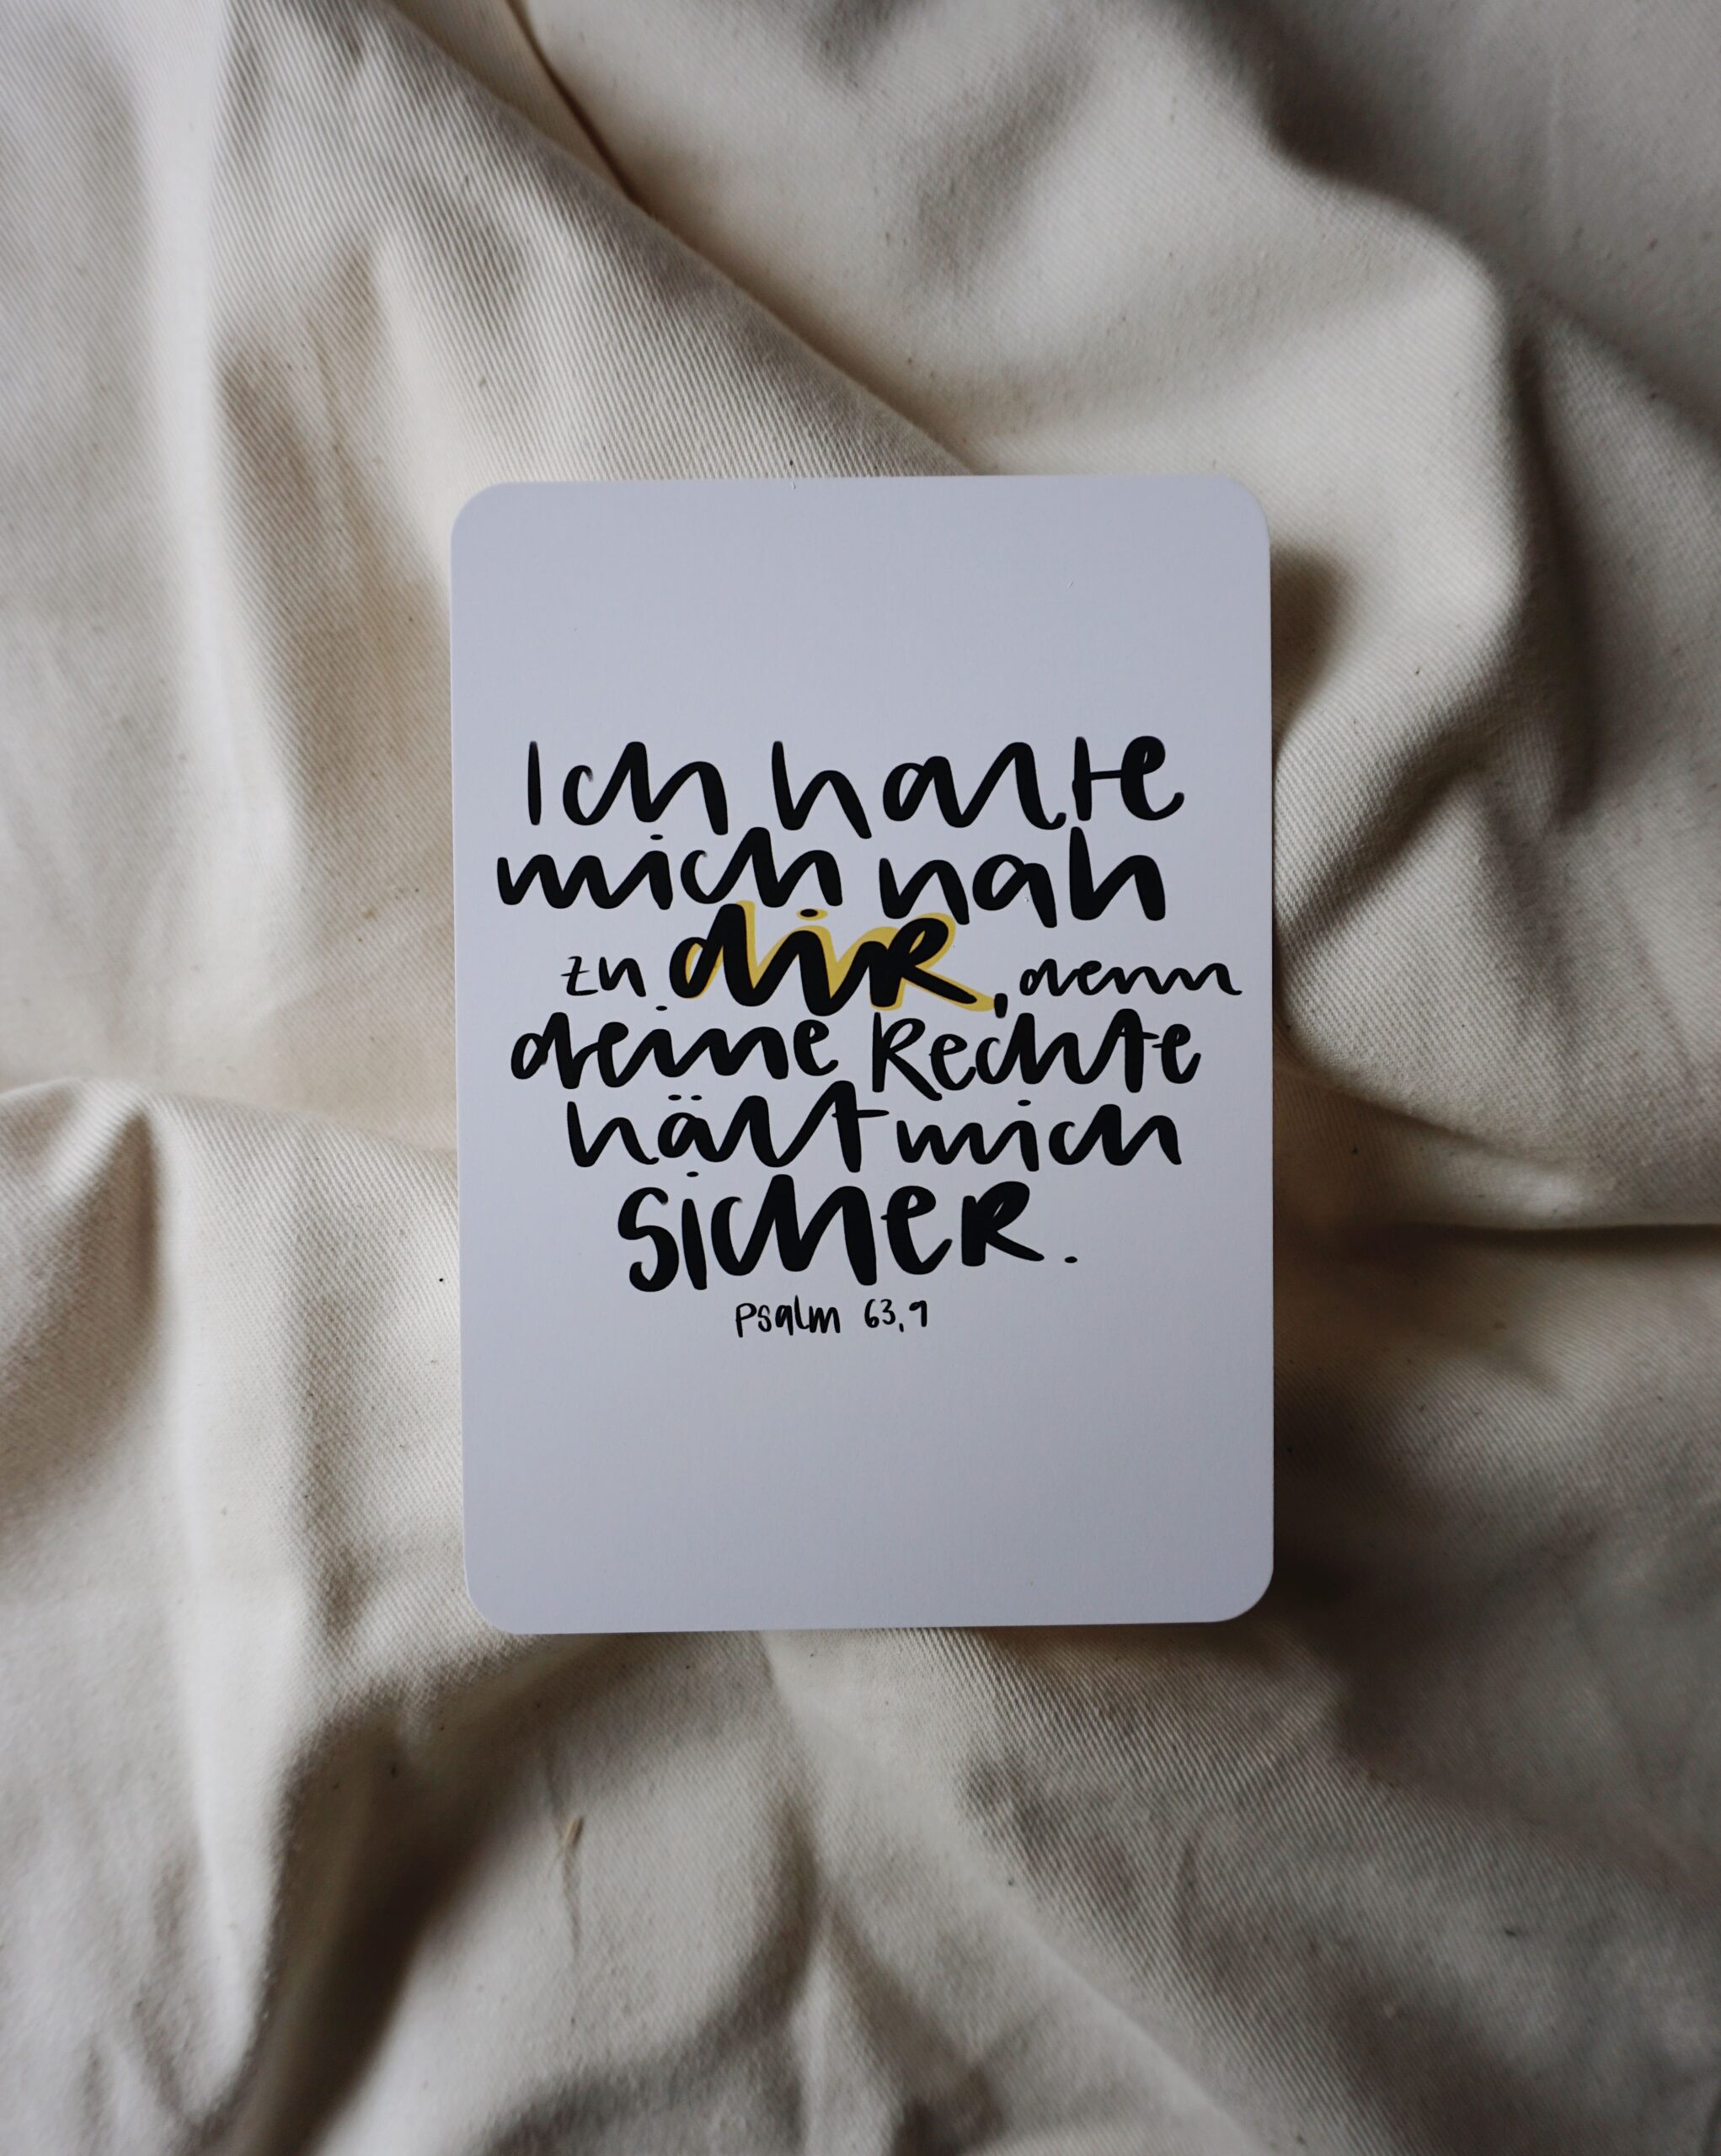 Ich halte
mich nah
zu dir, denn
deine Rechte
hält mich
sicher.
Psalm 63,9